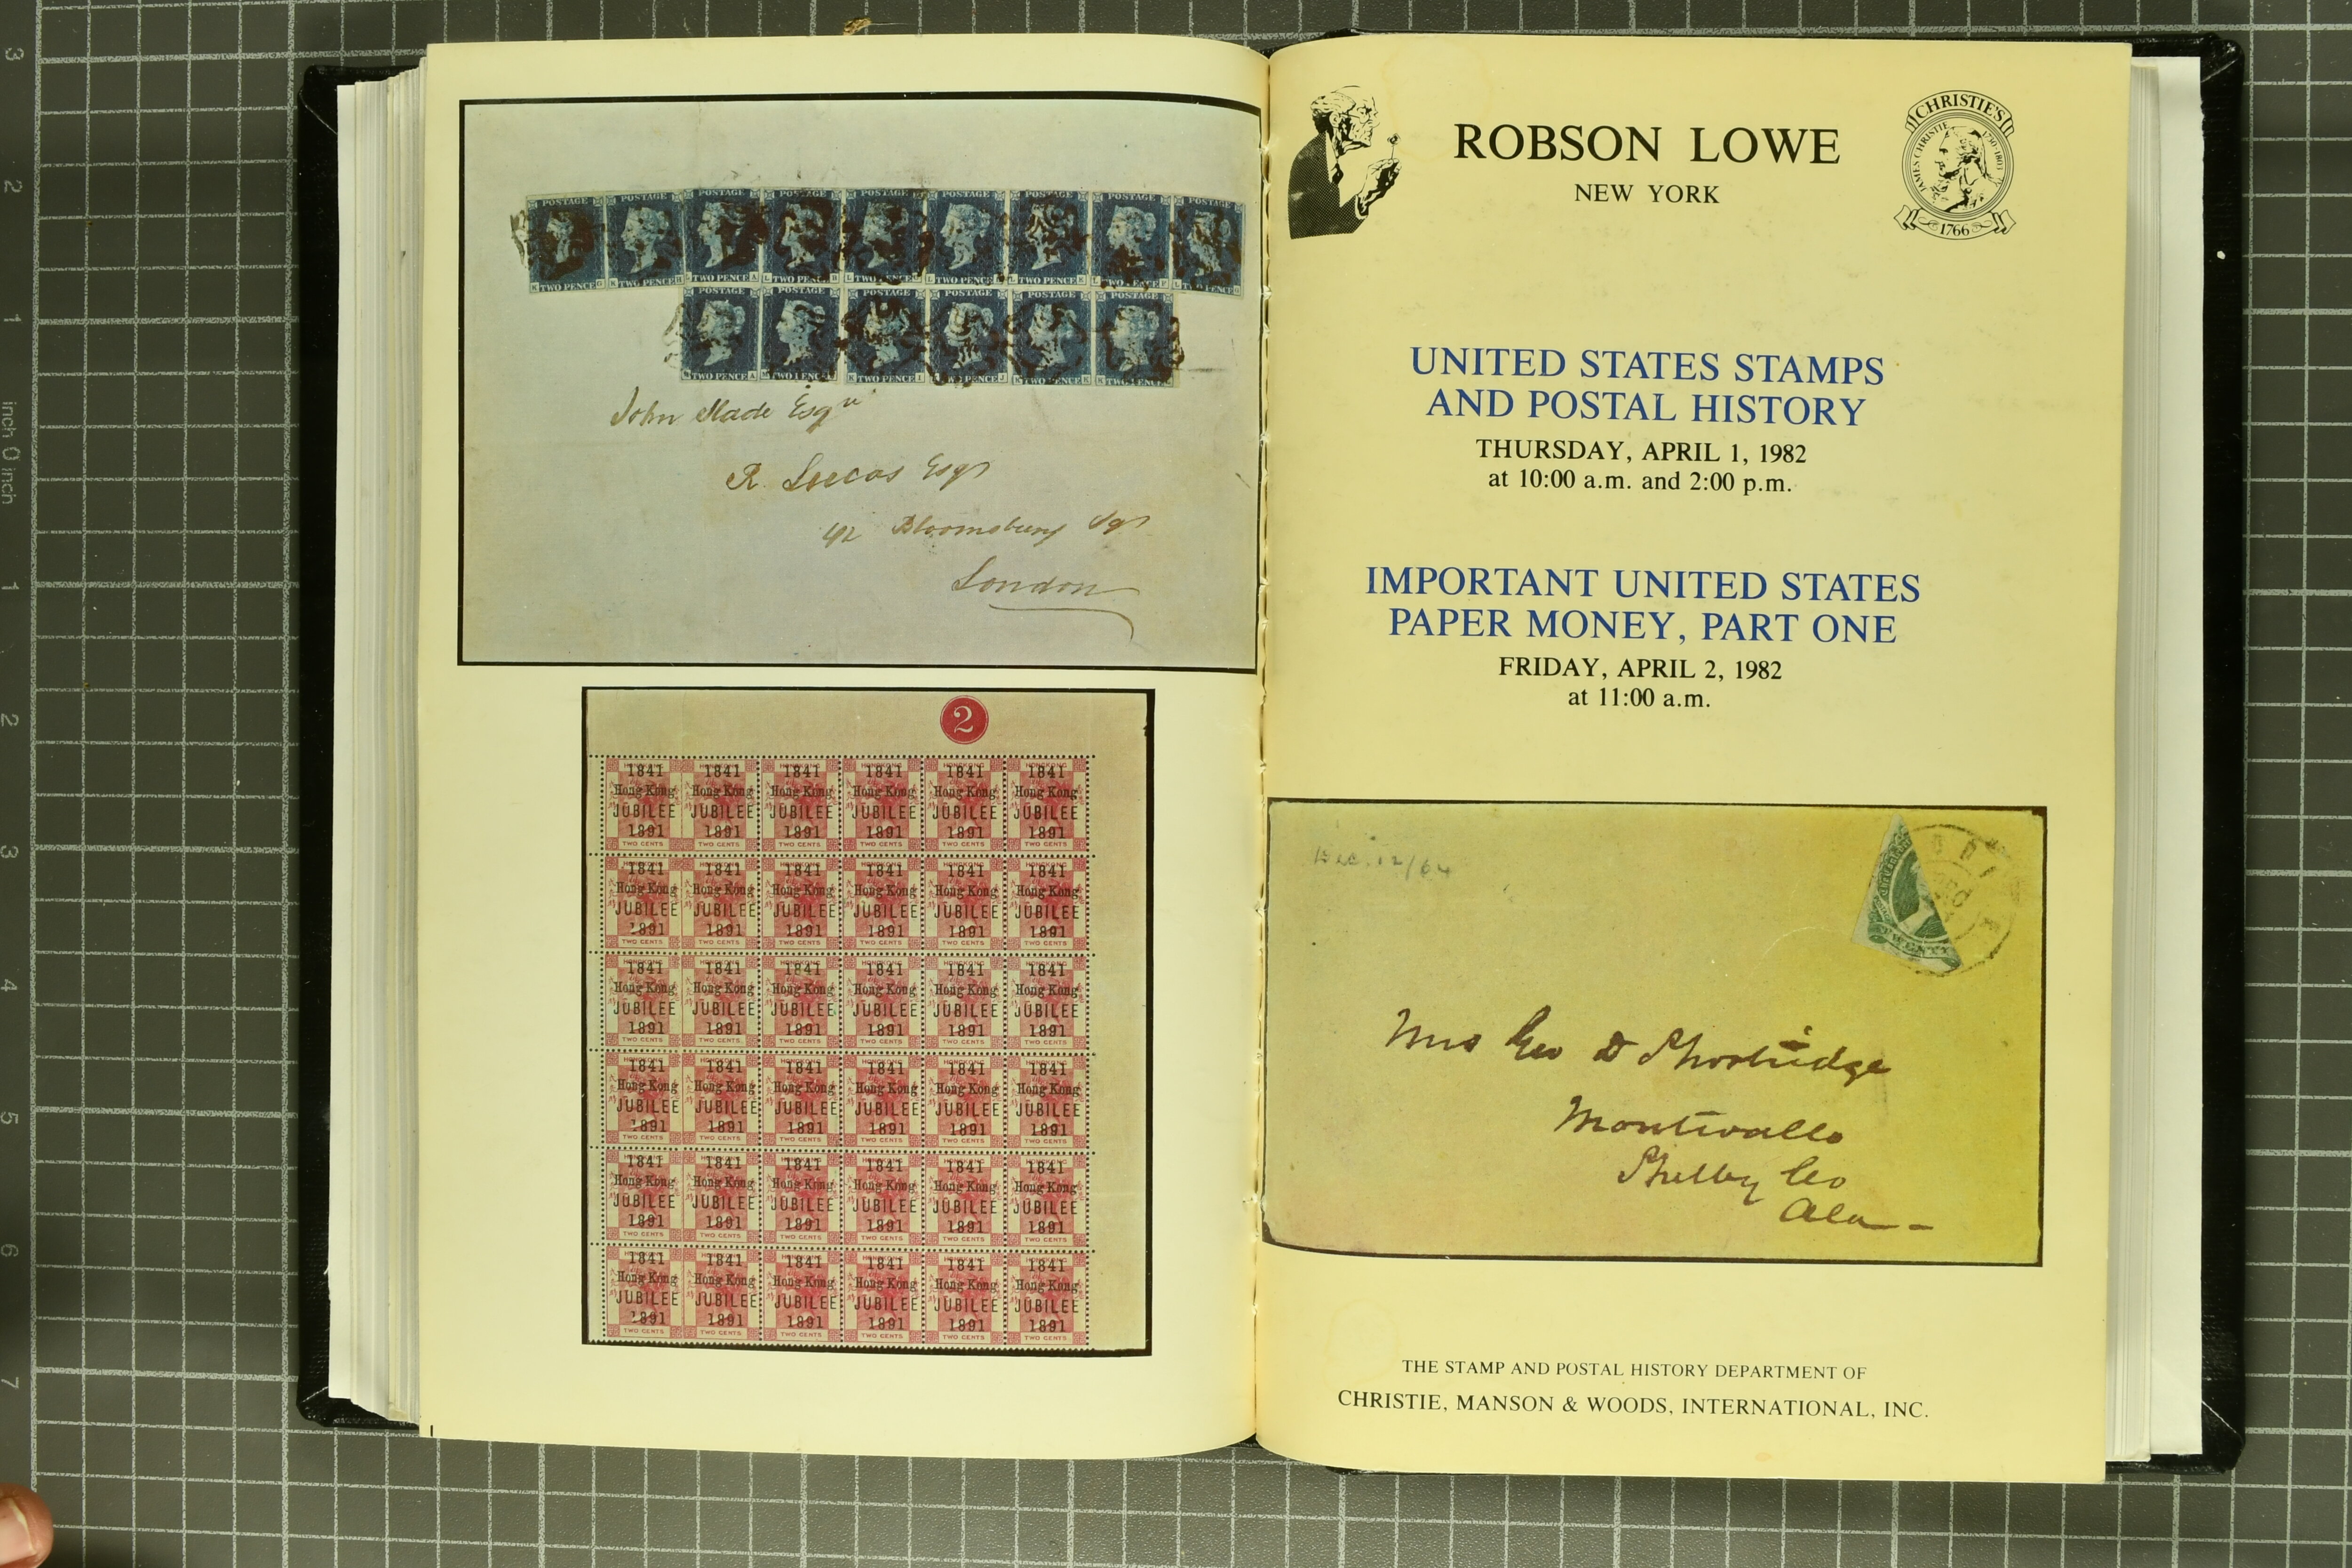 POSTAGE POSTAGE POSTAGE POSTAGE POSTAGE POSTAGE POSTAGE POSTAGE POSTAGE
TWO PENCE TWO PENCE TWO PENCE TWO PENCE TWO PENCE TWO PENCE TWO PENCE TWO PENCE
POSTAGE POSTAGE POSTAGE POSTAGE POSTAGE POSTAGE
TWO PENCE TWO PENCE TWO PENCE TWO PENCE TWO PENCE TWO PENCE
John Slade Esqr
R. Lucas Esqr
42 Bloomsbury Sqr
London
2
1841 1841 1841 1841 1841 1841
Hong Kong Hong Kong Hong Kong Hong Kong Hong Kong Hong Kong
JUBILEE JUBILEE JUBILEE JUBILEE JUBILEE JUBILEE
1891 1891 1891 1891 1891 1891
TWO CENTS TWO CENTS TWO CENTS TWO CENTS TWO CENTS TWO CENTS
1841 1841 1841 1841 1841 1841
Hong Kong Hong Kong Hong Kong Hong Kong Hong Kong Hong Kong
JUBILEE JUBILEE JUBILEE JUBILEE JUBILEE JUBILEE
1891 1891 1891 1891 1891 1891
TWO CENTS TWO CENTS TWO CENTS TWO CENTS TWO CENTS TWO CENTS
1841 1841 1841 1841 1841 1841
Hong Kong Hong Kong Hong Kong Hong Kong Hong Kong Hong Kong
JUBILEE JUBILEE JUBILEE JUBILEE JUBILEE JUBILEE
1891 1891 1891 1891 1891 1891
TWO CENTS TWO CENTS TWO CENTS TWO CENTS TWO CENTS TWO CENTS
1841 1841 1841 1841 1841 1841
Hong Kong Hong Kong Hong Kong Hong Kong Hong Kong Hong Kong
JUBILEE JUBILEE JUBILEE JUBILEE JUBILEE JUBILEE
1891 1891 1891 1891 1891 1891
TWO CENTS TWO CENTS TWO CENTS TWO CENTS TWO CENTS TWO CENTS
1841 1841 1841 1841 1841 1841
Hong Kong Hong Kong Hong Kong Hong Kong Hong Kong Hong Kong
JUBILEE JUBILEE JUBILEE JUBILEE JUBILEE JUBILEE
1891 1891 1891 1891 1891 1891
TWO CENTS TWO CENTS TWO CENTS TWO CENTS TWO CENTS TWO CENTS
1841 1841 1841 1841 1841 1841
Hong Kong Hong Kong Hong Kong Hong Kong Hong Kong Hong Kong
JUBILEE JUBILEE JUBILEE JUBILEE JUBILEE JUBILEE
1891 1891 1891 1891 1891 1891
TWO CENTS TWO CENTS TWO CENTS TWO CENTS TWO CENTS TWO CENTS
ROBSON LOWE
NEW YORK
CHRISTIE'S
JAMES CHRISTIE 1730-1803
1766
UNITED STATES STAMPS
AND POSTAL HISTORY
THURSDAY, APRIL 1, 1982
at 10:00 a.m. and 2:00 p.m.
IMPORTANT UNITED STATES
PAPER MONEY, PART ONE
FRIDAY, APRIL 2, 1982
at 11:00 a.m.
Dec. 12/64
TWENTY
Mrs Geo D Shortridge
Montevallo
Shelby Co
Ala
THE STAMP AND POSTAL HISTORY DEPARTMENT OF
CHRISTIE, MANSON & WOODS, INTERNATIONAL, INC.
3
2
1
inch 0 inch
1
2
3
4
5
6
7